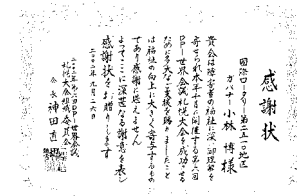 感謝状
国際ロータリー第二五一〇地区
ガバナー 小林 博 様
貴会は障害者の福祉に深いご理解を
寄せられ本年十月に開催する第六回
DPI世界会議札幌大会を成功させる
ために多大なご支援を賜りましたこと
は福祉の向上に大きく寄与するもの
であり感謝に堪えません
よってここに深甚なる謝意を表し
感謝状をお贈りします
二〇〇二年九月二六日
二〇〇二年第六回DPI世界会議
札幌大会組織委員会
会長 神田 直